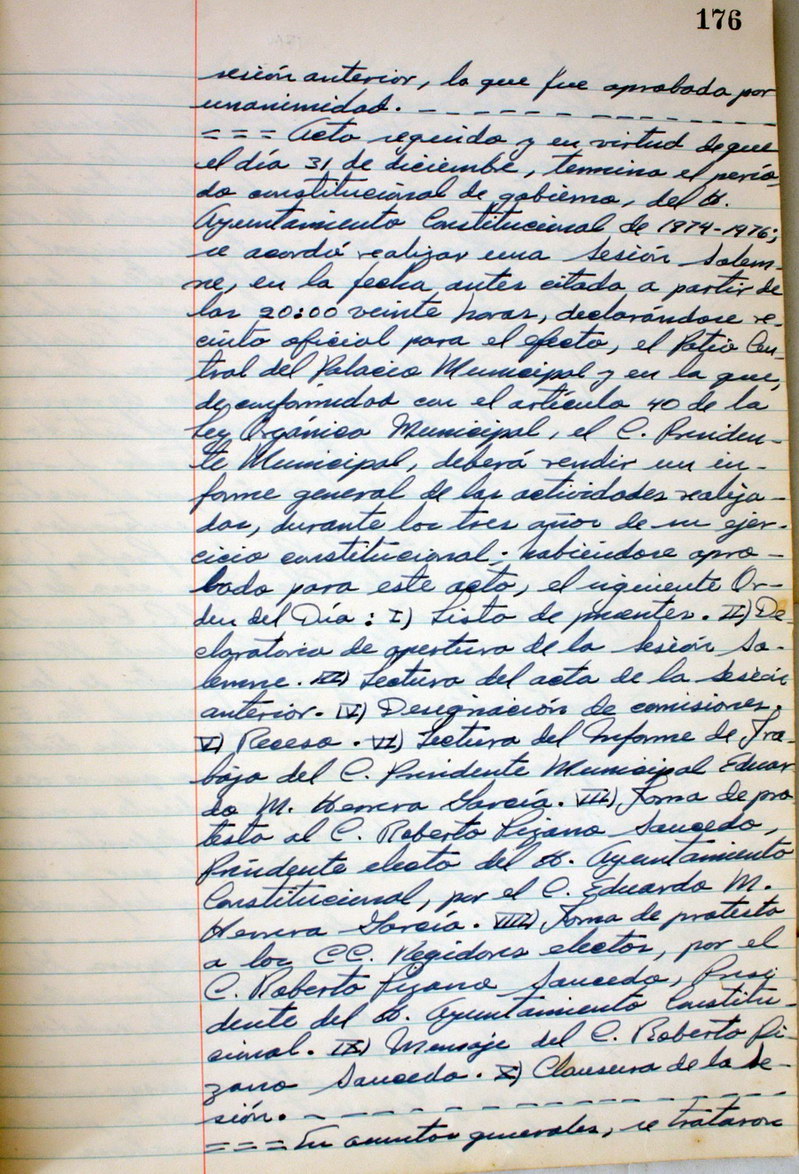 176
sesión anterior, la que fue aprobada por
unanimidad. - - - - - - - - - - -
= = = Acto seguido y en virtud de que
el día 31 de diciembre, termina el perío-
do constitucional de gobierno, del H.
Ayuntamiento Constitucional de 1974-1976;
se acordó realizar una Sesión Solem-
ne, en la fecha antes citada a partir de
las 20:00 veinte horas, declarándose re-
cinto oficial para el efecto, el Patio Cen-
tral del Palacio Municipal y en la que,
de conformidad con el artículo 40 de la
Ley Orgánica Municipal, el C. Presiden-
te Municipal, deberá rendir un in-
forme general de las actividades realiza-
das, durante los tres años de su ejer-
cicio constitucional. habiéndose apro-
bado para este acto, el siguiente Or-
den del Día : I) Lista de presentes. II) De-
claratoria de apertura de la sesión So-
lemne. III) Lectura del acta de la sesión
anterior. IV) Designación de comisiones.
V) Receso. VI) Lectura del Informe de Tra-
bajo del C. Presidente Municipal Eduar
do M. Herrera García. VII) Toma de pro-
testa al C. Roberto Lizano Saucedo,
Presidente electo del H. Ayuntamiento
Constitucional, por el C. Eduardo M.
Herrera García. VIII) Toma de protesta
a los CC. Regidores electos, por el
C. Roberto Lizano Saucedo, Presi
dente del H. Ayuntamiento Constitu-
cional. IX) Mensaje del C. Roberto Li-
zano Saucedo. X) Clausura de la Se-
sión. - - - - - - - - - - - - -
= = = En asuntos generales, se trataron